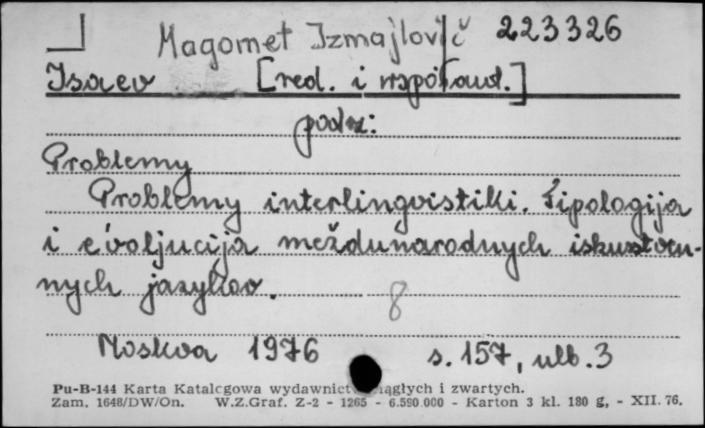 Magomet Izmajlovič 223326
Isaev [red. i współaut.]
podz:
Problemy
Problemy interlingvistiki. Tipologija
i evoljucija meždunarodnych iskusstven-
nych jazykov. 8
Moskva 1976 s. 157, nlb. 3
Pu-B-144 Karta Katalogowa wydawnictw ciągłych i zwartych.
Zam. 1648/DW/On. W.Z.Graf. Z-2 - 1265 - 6.590.000 - Karton 3 kl. 180 g, - XII. 76.